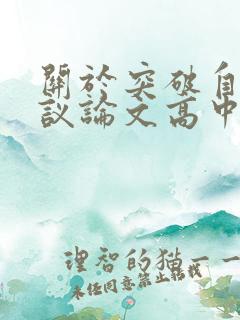 關於突破自
議論文高中
理智的猫一一
未经同意禁止转载